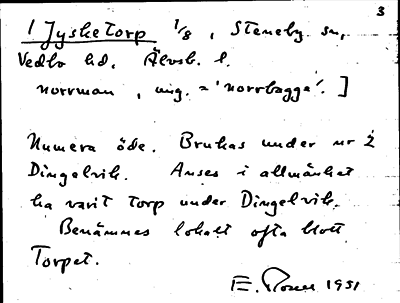 3
1 Jysketorp 1/8, Steneby sn,
Vedbo hd. Älvsb. l.
norrman, ung. = 'norrbagge'. ]
Numera öde. Brukas under nr 2
Dingelvik. Anses i allmänhet
ha varit torp under Dingelvik.
Benämnes lokalt ofta blott
Torpet.
E. 1951